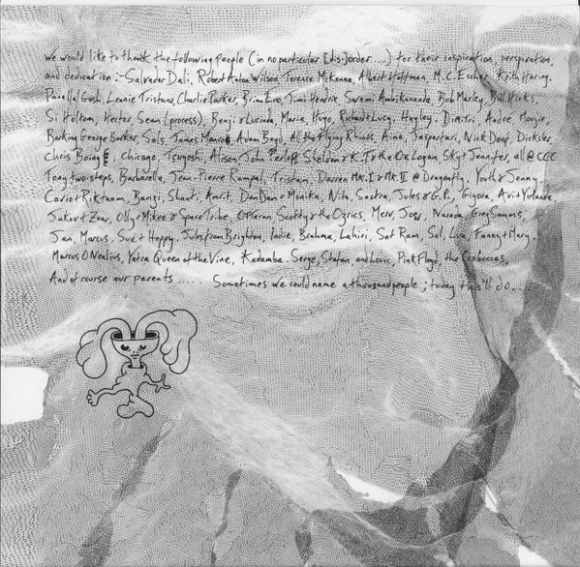 We would like to thank the following people (in no particular [dis-]order....) for their inspiration, perspiration,
and dedication :- Salvador Dali, Robert Anton Wilson, Terence McKenna, Albert Hoffman, M.C. Escher, Keith Haring,
Gosh, Lennie Tristano, Charlie Parker, Brian Eno, Jimi Hendrix, Swami Ambikananda, Bob Marley, Bill Hicks,
Si Holtom, Hector, Sean (process), Benji & Lucinda, Maria, Hugo, Richard & Lucy, Hayley, Dimitri, Andre, Mogie,
Barking George Barker, Sols, James Monro, Adam Boyd, All the Flying Rhinos, Aina, Jaspartari, Nick Doof, Dickster,
Chris Boing, Chicago, Tsuyoshi, Alison, John Perloff, Sheldon & K., T & the On Logan, Sky & Jennifer, all @ CCC
Tony twosteps, Barbarella, Jean-Pierre Rampal, Tristan, Darren MK.I & MK.II @ Dragonfly, Youth & Jenny,
Cavi & Riktaam, Banzi, Shanti, Amrit, Dan Dan & Monika, Nita, Sastra, Jules & G.P., Gigora, Avi & Yolande,
& Zoar, Olly & Mikee & Space Tribe, Otteran, Scotty & the Ogrics, Merv, Josi, Narada, Greg Sammons,
Jan, Marcus, Sue & Hoppy, Jules from Brighton, Indie, Brahma, Lahiri, Sat Ram, Sol, Lua, Fanny & Mary.
Marcus O'Nealious, Yatra Queen of the Vine, Kadamba, Serge, Stefan, and Lovic, Pink Floyd, the
And of course our parents ..... Sometimes we could name a thousand people; today this'll do.....